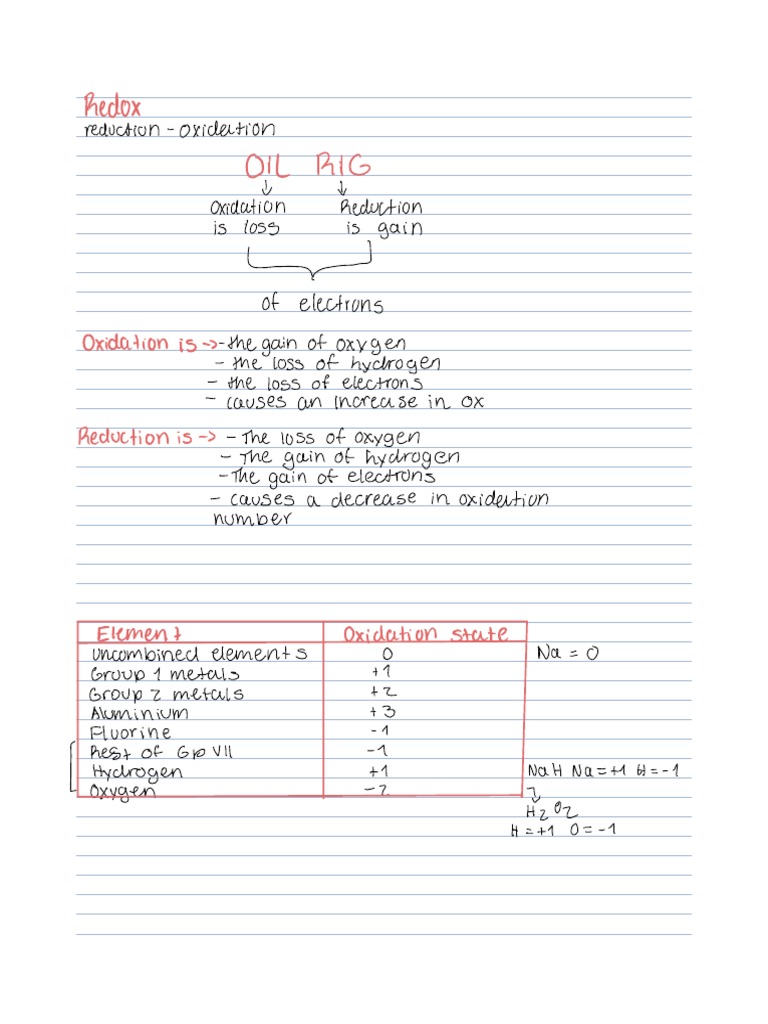 Redox
reduction - oxidation
OIL RIG
Oxidation Reduction
is loss is gain
of electrons
Oxidation is -> - the gain of oxygen
- the loss of hydrogen
- the loss of electrons
- causes an increase in ox
Reduction is -> - The loss of oxygen
- The gain of hydrogen
- The gain of electrons
- causes a decrease in oxidation
number
Element Oxidation state
uncombined elements 0 Na = 0
Group 1 metals +1
Group 2 metals +2
Aluminium +3
Fluorine -1
Rest of Gp VII -1
Hydrogen +1 NaH Na=+1 H=-1
Oxygen -2
H2O2
H=+1 O=-1